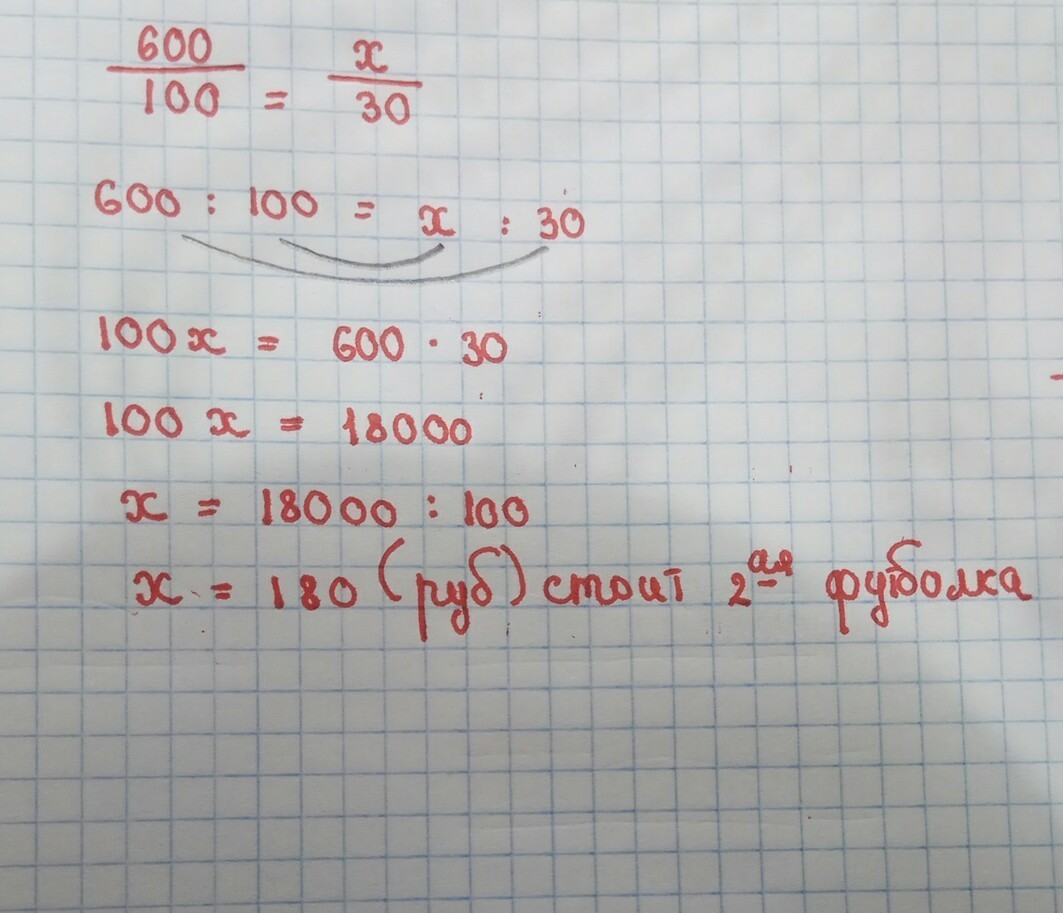 600/100 = x/30
600 : 100 = x : 30
100x = 600 · 30
100 x = 18000
x = 18000 : 100
x = 180 (руб) стоит 2ая футболка